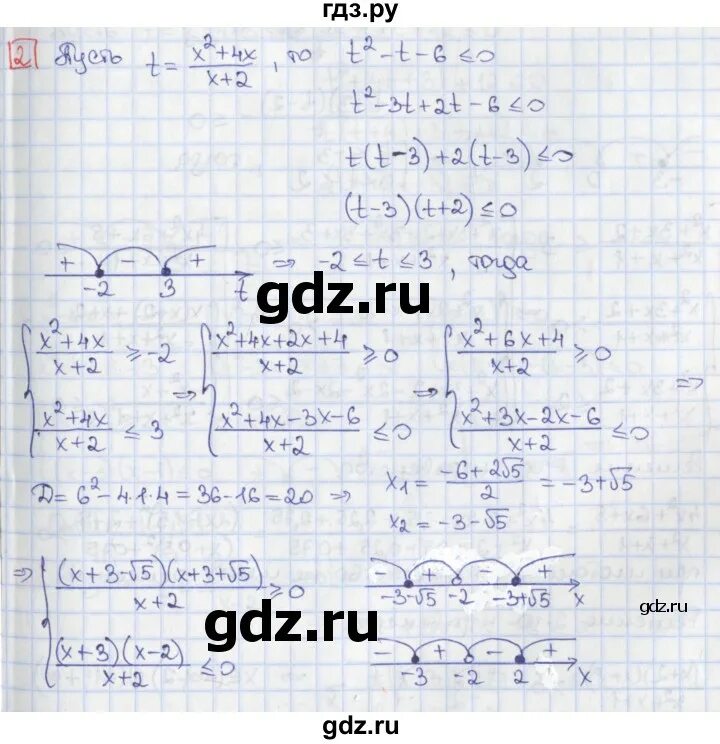 гдз.ру
2 Пусть t = (x²+4x)/(x+2), то t² - t - 6 ≤ 0
t² - 3t + 2t - 6 ≤ 0
t(t-3) + 2(t-3) ≤ 0
(t-3)(t+2) ≤ 0
+ - + -2 3 t ⇒ -2 ≤ t ≤ 3, тогда
gdz.ru
{ (x²+4x)/(x+2) ≥ -2 ⇒ { (x²+4x+2x+4)/(x+2) ≥ 0 ⇒ { (x²+6x+4)/(x+2) ≥ 0 ⇒
(x²+4x)/(x+2) ≤ 3 (x²+4x-3x-6)/(x+2) ≤ 0 (x²+3x-2x-6)/(x+2) ≤ 0
D = 6² - 4·1·4 = 36 - 16 = 20 ⇒ x₁ = (-6+2√5)/2 = -3+√5
x₂ = -3-√5
⇒ { ((x+3-√5)(x+3+√5))/(x+2) ≥ 0 - + - + -3-√5 -2 -3+√5 x
gdz.ru
gdz.ru
((x+3)(x-2))/(x+2) ≤ 0 - + - + -3 -2 2 x
gdz.ru